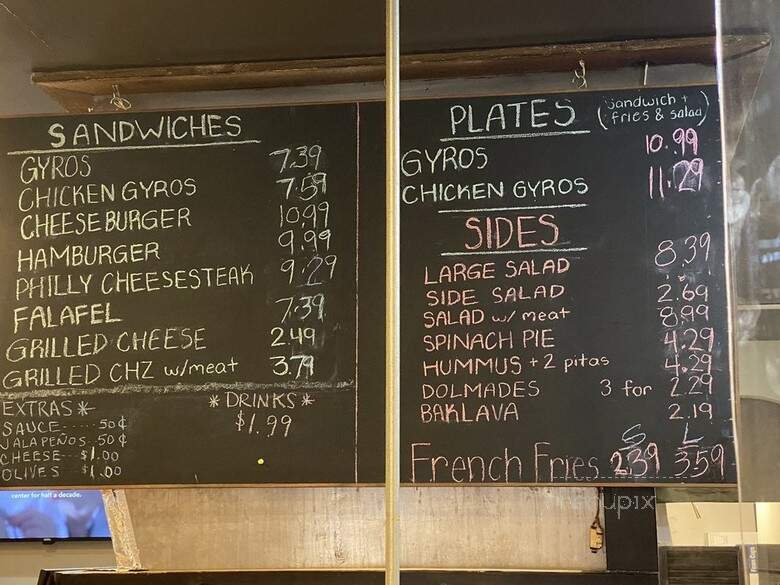 SANDWICHES
GYROS 7.39
CHICKEN GYROS 7.59
CHEESEBURGER 10.99
HAMBURGER 9.99
PHILLY CHEESESTEAK 9.29
FALAFEL 7.39
GRILLED CHEESE 2.49
GRILLED CHZ w/meat 3.79
EXTRAS *
SAUCE---- 50¢
JALAPEÑOS- 50¢
CHEESE--- $1.00
OLIVES $1.00
* DRINKS *
$1.99
PLATES (Sandwich + fries & salad)
GYROS 10.99
CHICKEN GYROS 11.29
SIDES
LARGE SALAD 8.39
SIDE SALAD 2.69
SALAD w/ meat 8.99
SPINACH PIE 4.29
HUMMUS + 2 pitas 4.29
DOLMADES 3 for 2.29
BAKLAVA 2.19
S L
French Fries 2.39 3.59
center for half a decade.